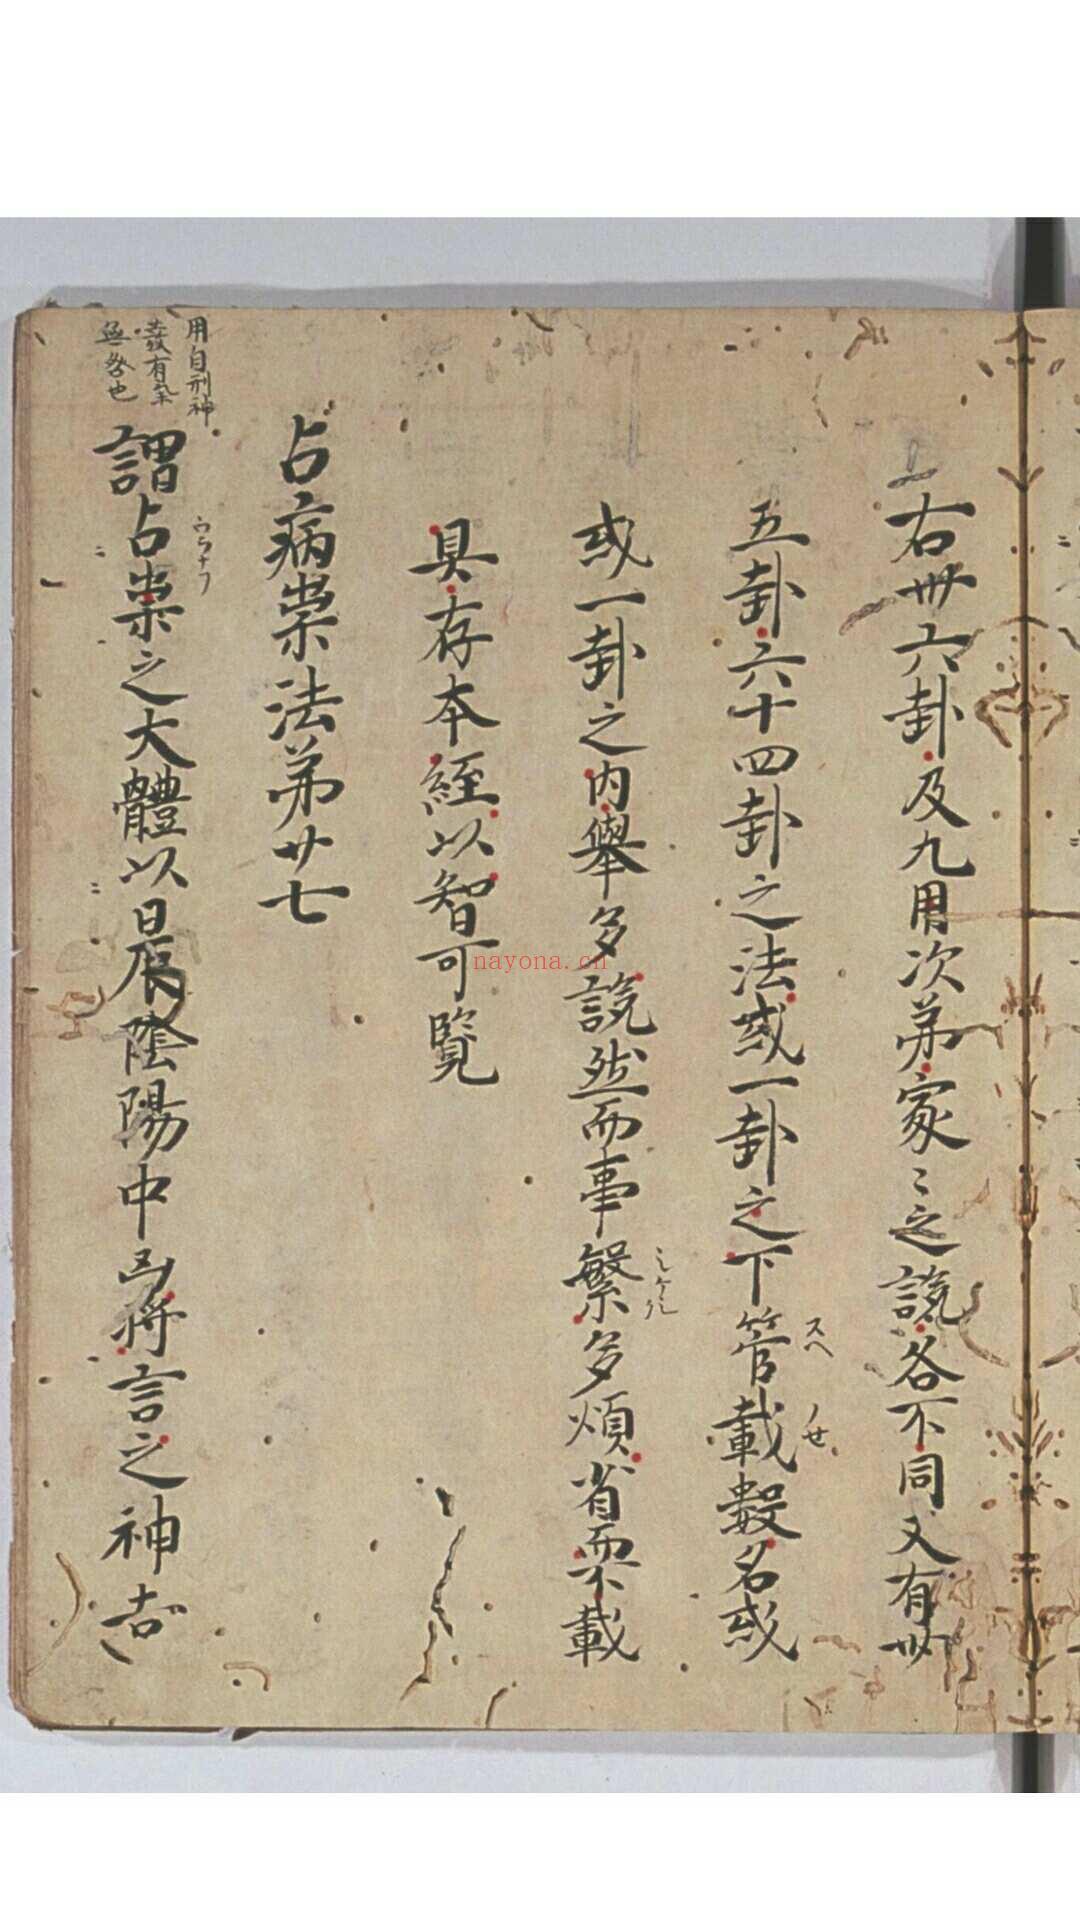 右卅六卦及九用次第家〻之説各不同又有卌
五卦六十四卦之法或一卦之下管載數名或
スヘ
ノせ
或一卦之内舉多説然而事繁多煩省而不載
シケク
具存本經以智可覧
占病祟法第廿七
謂占祟之大體以日辰陰陽中凶將言之神吉
ウラナフ
用自刑神
發有氣
無咎也
nayona.cn